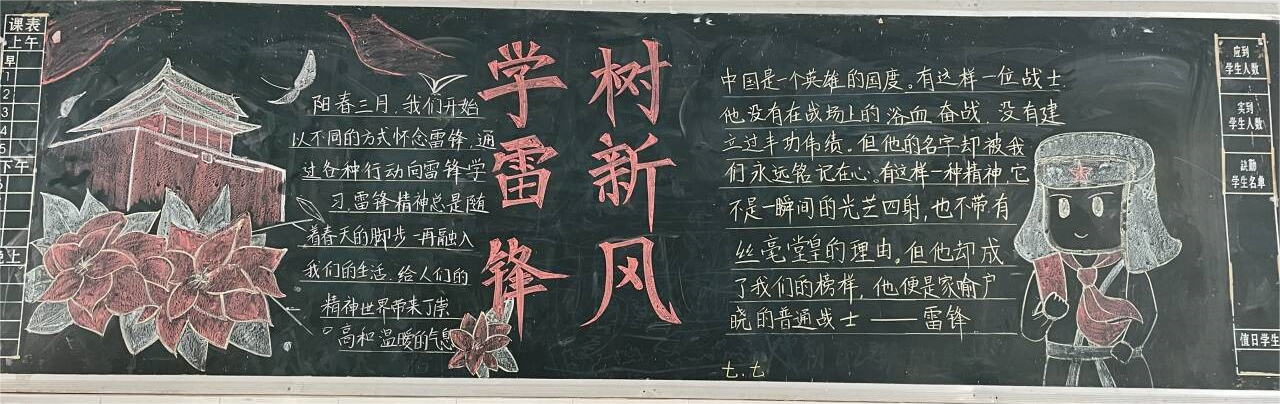 课表
上午
早
1
2
3
4
5
下午
晚上
阳春三月，我们开始
以不同的方式怀念雷锋，通
过各种行动向雷锋学
习，雷锋精神总是随
着春天的脚步一再融入
我们的生活，给人们的
精神世界带来了崇
高和温暖的气息
学雷锋
树新风
中国是一个英雄的国度。有这样一位战士，
他没有在战场上的浴血奋战，没有建
立过丰功伟绩。但他的名字却被我
们永远铭记在心。有这样一种精神，它
不是一瞬间的光芒四射，也不带有
丝毫堂皇的理由。但他却成
了我们的榜样，他便是家喻户
晓的普通战士——雷锋
七.七
应到
学生人数
实到
学生人数
缺勤
学生名单
值日学生